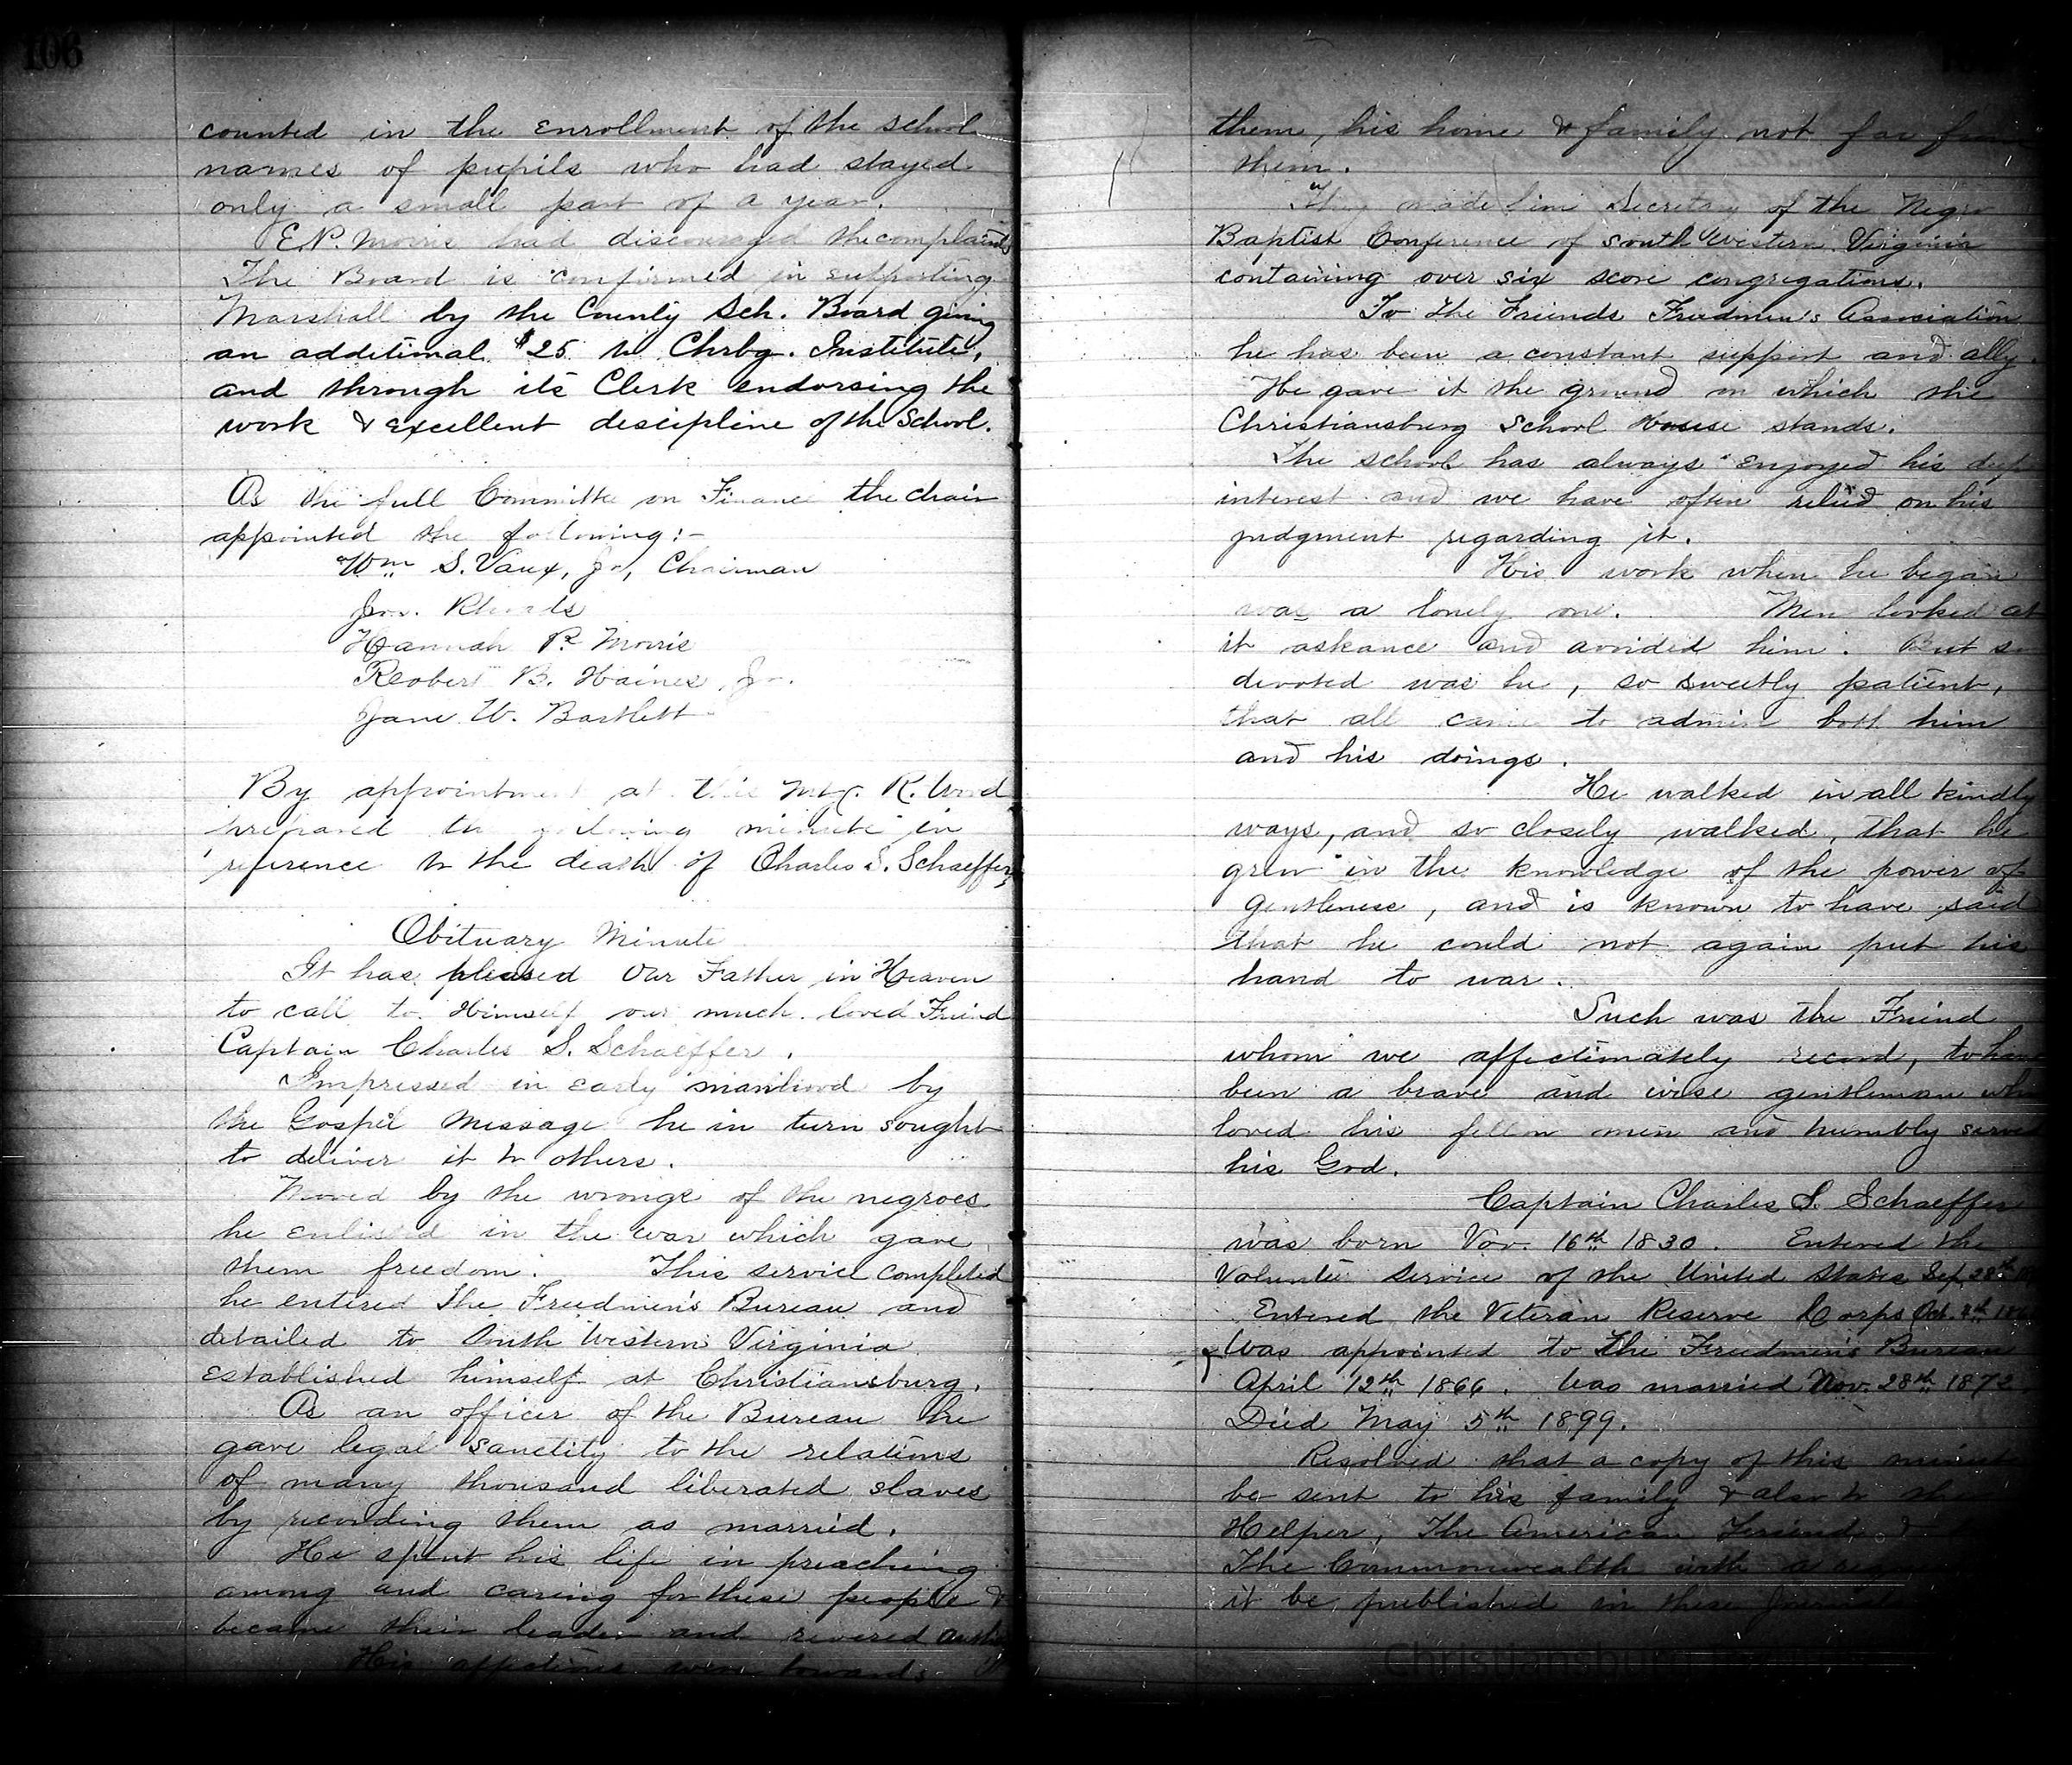 106
counted in the enrollment of the school
names of pupils who had stayed
only a small part of a year.
E.P. Morris had discouraged the complaints
The Board is confirmed in supporting
Marshall by the County Sch. Board giving
an additional $25 to Chrbg. Institute,
and through its Clerk endorsing the
work & excellent descipline of the School.
As the full Committee on Finance the chair
appointed the following:-
Wm S. Vaux, Jr, Chairman
Jos. Rhoads
Hannah P. Morris
Robert B. Haines Jr.
Jane W. Bartlett
By appointment at this Mtg. R. Wood
prepared the following minute in
reference to the death of Charles S. Schaeffer,
Obituary Minute
It has pleased our Father in Heaven
to call to Himself our much loved Friend
Captain Charles S. Schaeffer.
Impressed in early manhood by
the Gospel message he in turn sought
to deliver it to others.
Moved by the wrongs of the negroes
he enlisted in the war which gave
them freedom. This service completed
he entered the Freedmen's Bureau and
detailed to South Western Virginia
established himself at Christiansburg.
As an officer of the Bureau he
gave legal sanctity to the relations
of many thousand liberated slaves
by recording them as married.
He spent his life in preaching
among and caring for these people &
became their leader and revered
His affections were towards
them, his home & family not far from
them.
They made him Secretary of the Negro
Baptist Conference of South Western Virginia
containing over six score congregations.
To the Friends Freedmen's Association
he has been a constant support and ally.
He gave it the ground on which the
Christiansburg School House stands.
The school has always enjoyed his deep
interest and we have often relied on his
judgment regarding it.
His work when he began
was a lonely one. Men looked at
it askance and avoided him. But so
devoted was he, so sweetly patient,
that all came to admire both him
and his doings.
He walked in all kindly
ways, and so closely walked, that he
grew in the knowledge of the power of
gentleness, and is known to have said
that he could not again put his
hand to war.
Such was the Friend
whom we affectionately record, to have
been a brave and wise gentleman who
loved his fellow men and humbly served
his God.
Captain Charles S. Schaeffer
was born Nov. 16th 1830. Entered the
Volunteer Service of the United States Sep. 28th
Entered the Veteran Reserve Corps Oct.
Was appointed to the Freedmen's Bureau
April 12th 1866. Was married Nov. 28th 1872
Died May 5th 1899.
Resolved that a copy of this minute
be sent to his family & also to
Helper, The American Friend, &
The Commonwealth with a
it be published in these
Christiansburg